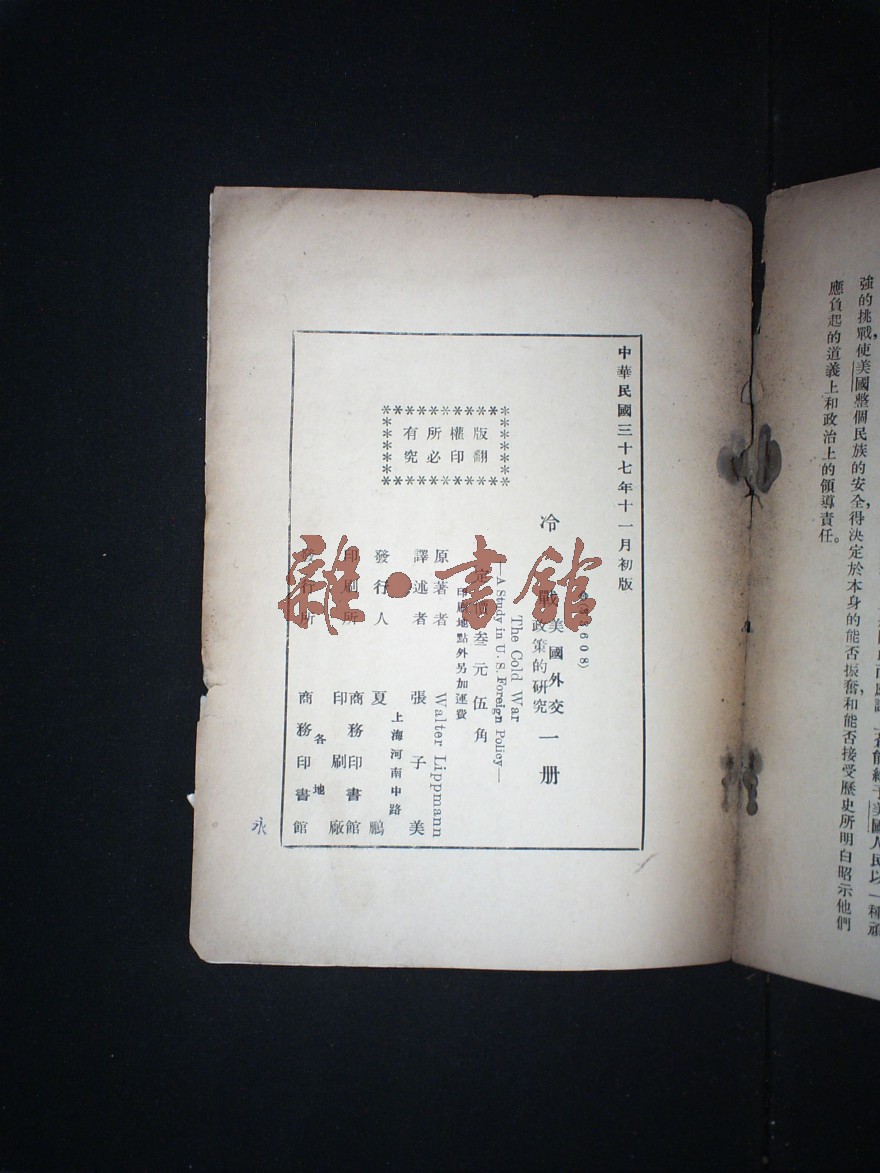 強的挑戰，使美國整個民族的安全得決定於本身的能否振奮和能否接受歷史所明白昭示他們
應負起的道義上和政治上的領導責任。
中華民國三十七年十一月初版
冷戰 美國外交政策的研究 一册
The Cold War
—A Study in U. S. Foreign Policy—
定價叁元伍角
印刷地點外另加運費
原著者 Walter Lippmann
譯述者 張子美
發行人 夏鵬
上海河南中路
印刷所 商務印書館印刷廠
發行所 各地 商務印書館
版權所有
翻印必究
永
雜·書館